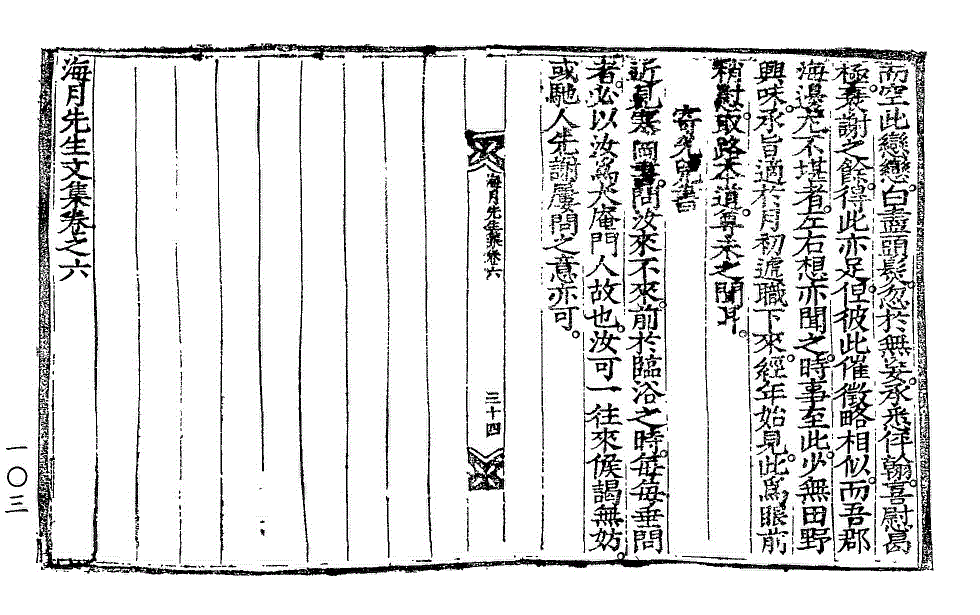 而空此戀戀。白盡頭髮。忽於無妄。承悉伻翰。喜慰曷
極。衰謝之餘。得此亦足。但彼此催徵略相似。而吾郡
海邊尤不堪者。左右想亦聞之。時事至此。少無田野
興味。承旨適於月初遞職下來。經年始見。此爲眼前
稍慰。取路本道。尊未之聞耳。
寄兒書
近見寒岡書。問汝來不來。前於臨浴之時。每每垂問
者。必以汝爲大庵門人故也。汝可一往來候謁無妨。
或馳人先謝屢問之意亦可。
海月先生集卷六
三十四
海月先生文集卷之六
一〇三